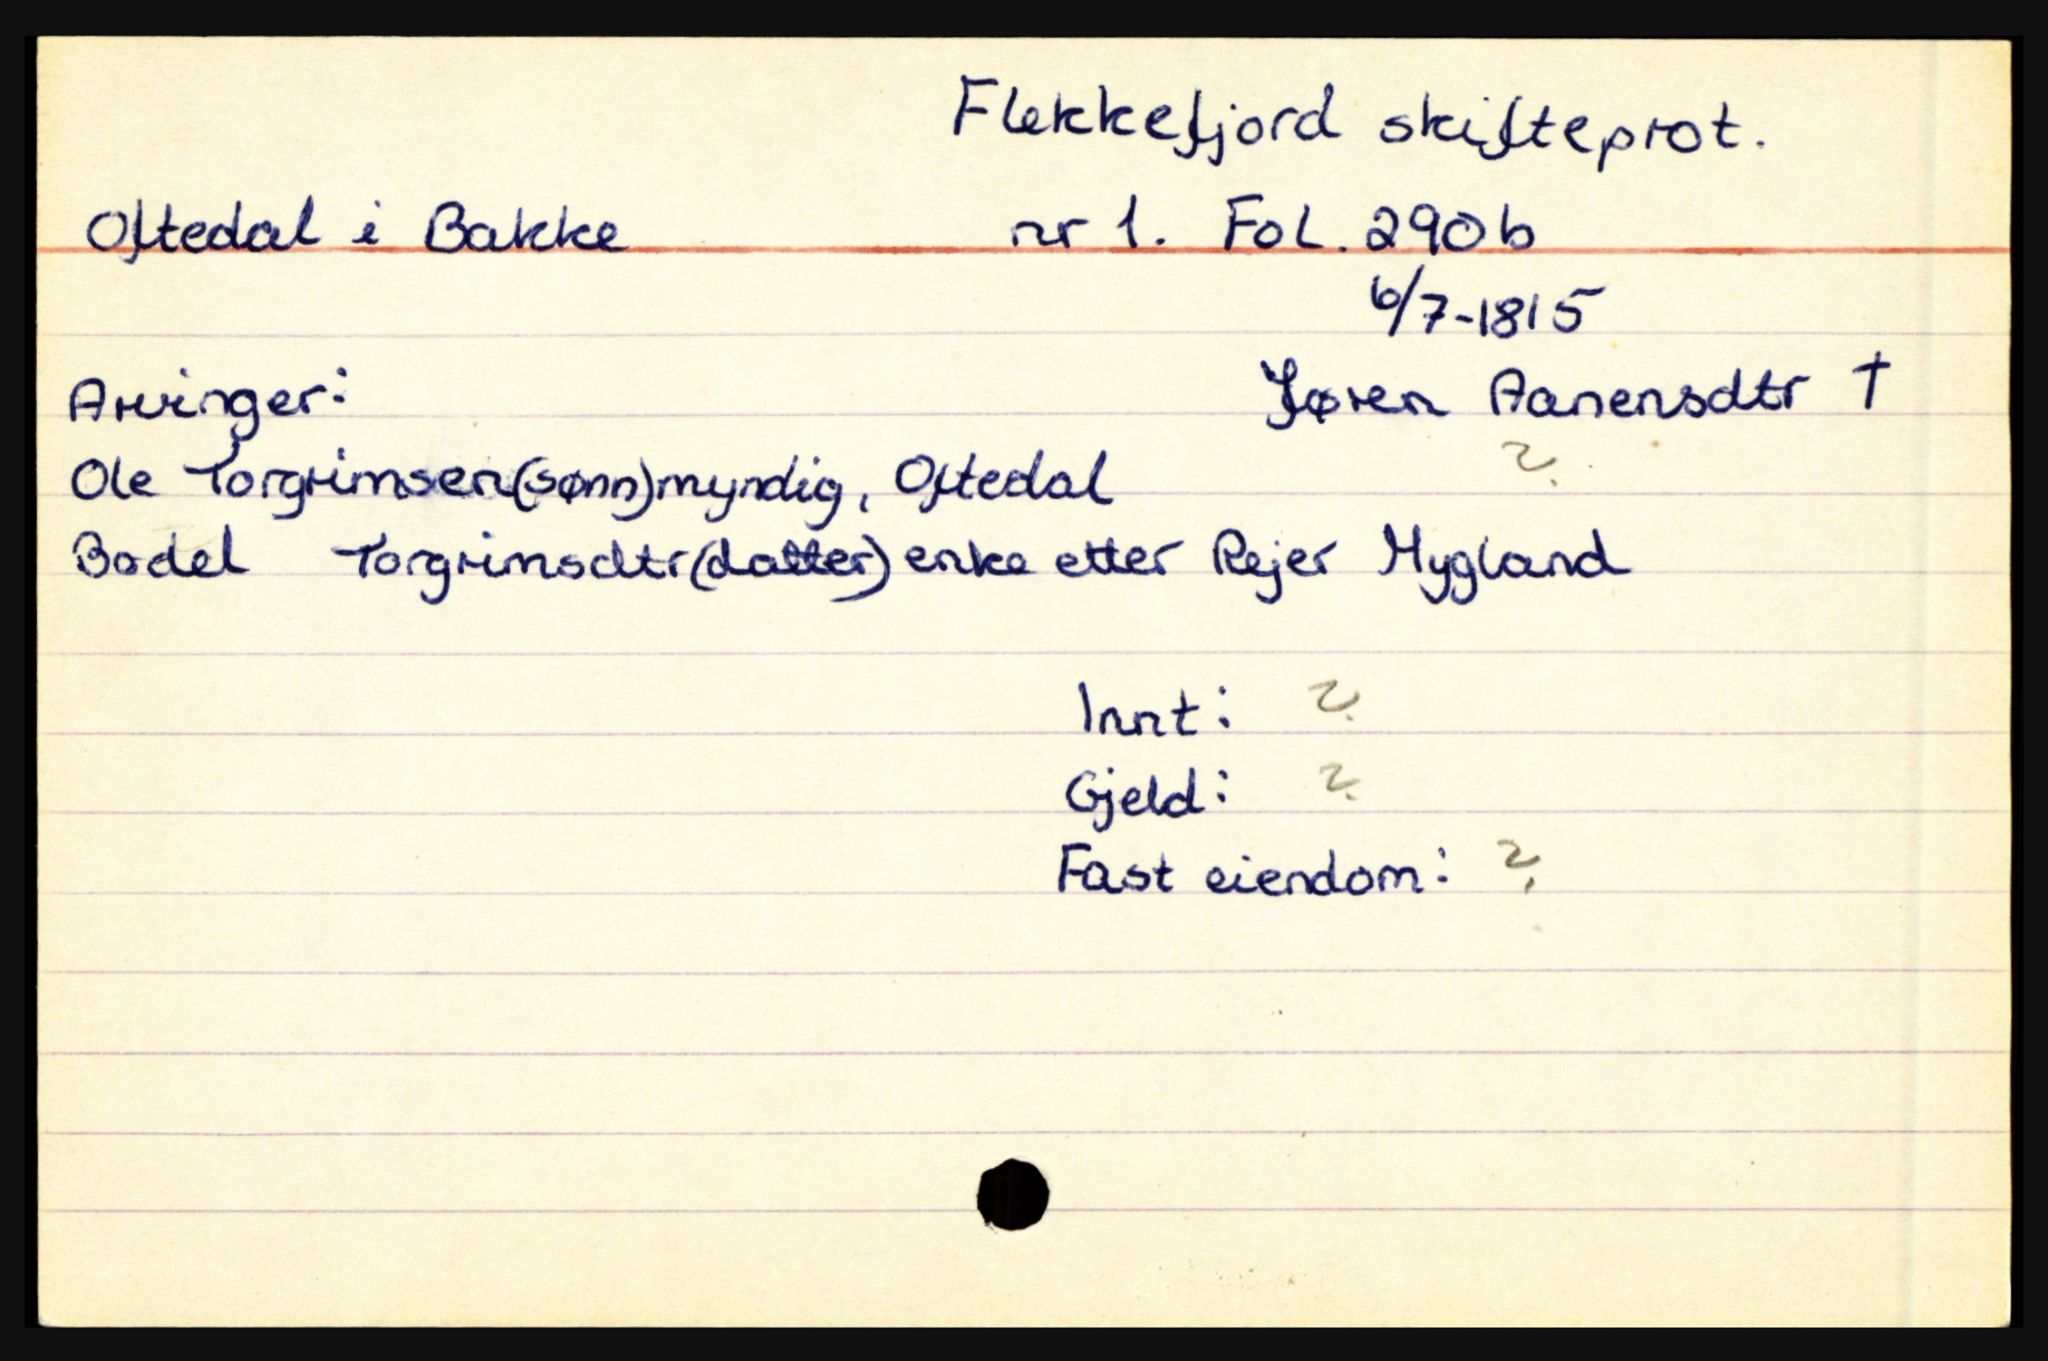 Flekkefjord skifteprot.
Oftedal i Bakke nr 1. Fol. 290b
6/7-1815
Arvinger: Jøren Aanensdtr †
?
Ole Torgrimsen (sønn) myndig, Oftedal
Bodel Torgrimsdtr (datter) enke etter Rejer Mygland
Innt: ?
Gjeld: ?
Fast eiendom: ?